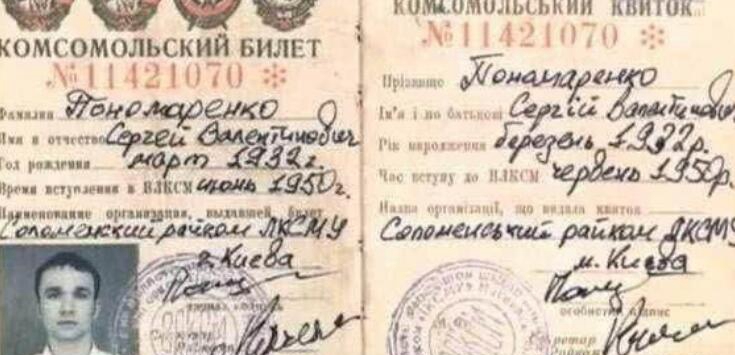 КОМСОМОЛЬСКИЙ БИЛЕТ
№11421070
Фамилия Пономаренко
Имя и отчество Сергей Валентинович
Год рождения март 1932 г.
Время вступления в ВЛКСМ июнь 1950 г.
Наименование организации, выдавшей билет
Соломенский райком ЛКСМУ
г. Киева
КОМСОМОЛЬСЬКИЙ КВИТОК
№11421070
Прізвище Пономаренко
Ім'я і по батькові Сергій Валентинович
Рік народження березень 1932 р.
Час вступу до ВЛКСМ червень 1950 р.
Назва організації, що видала квиток
Соломенський райком ЛКСМУ
м. Києва
особистий підпис